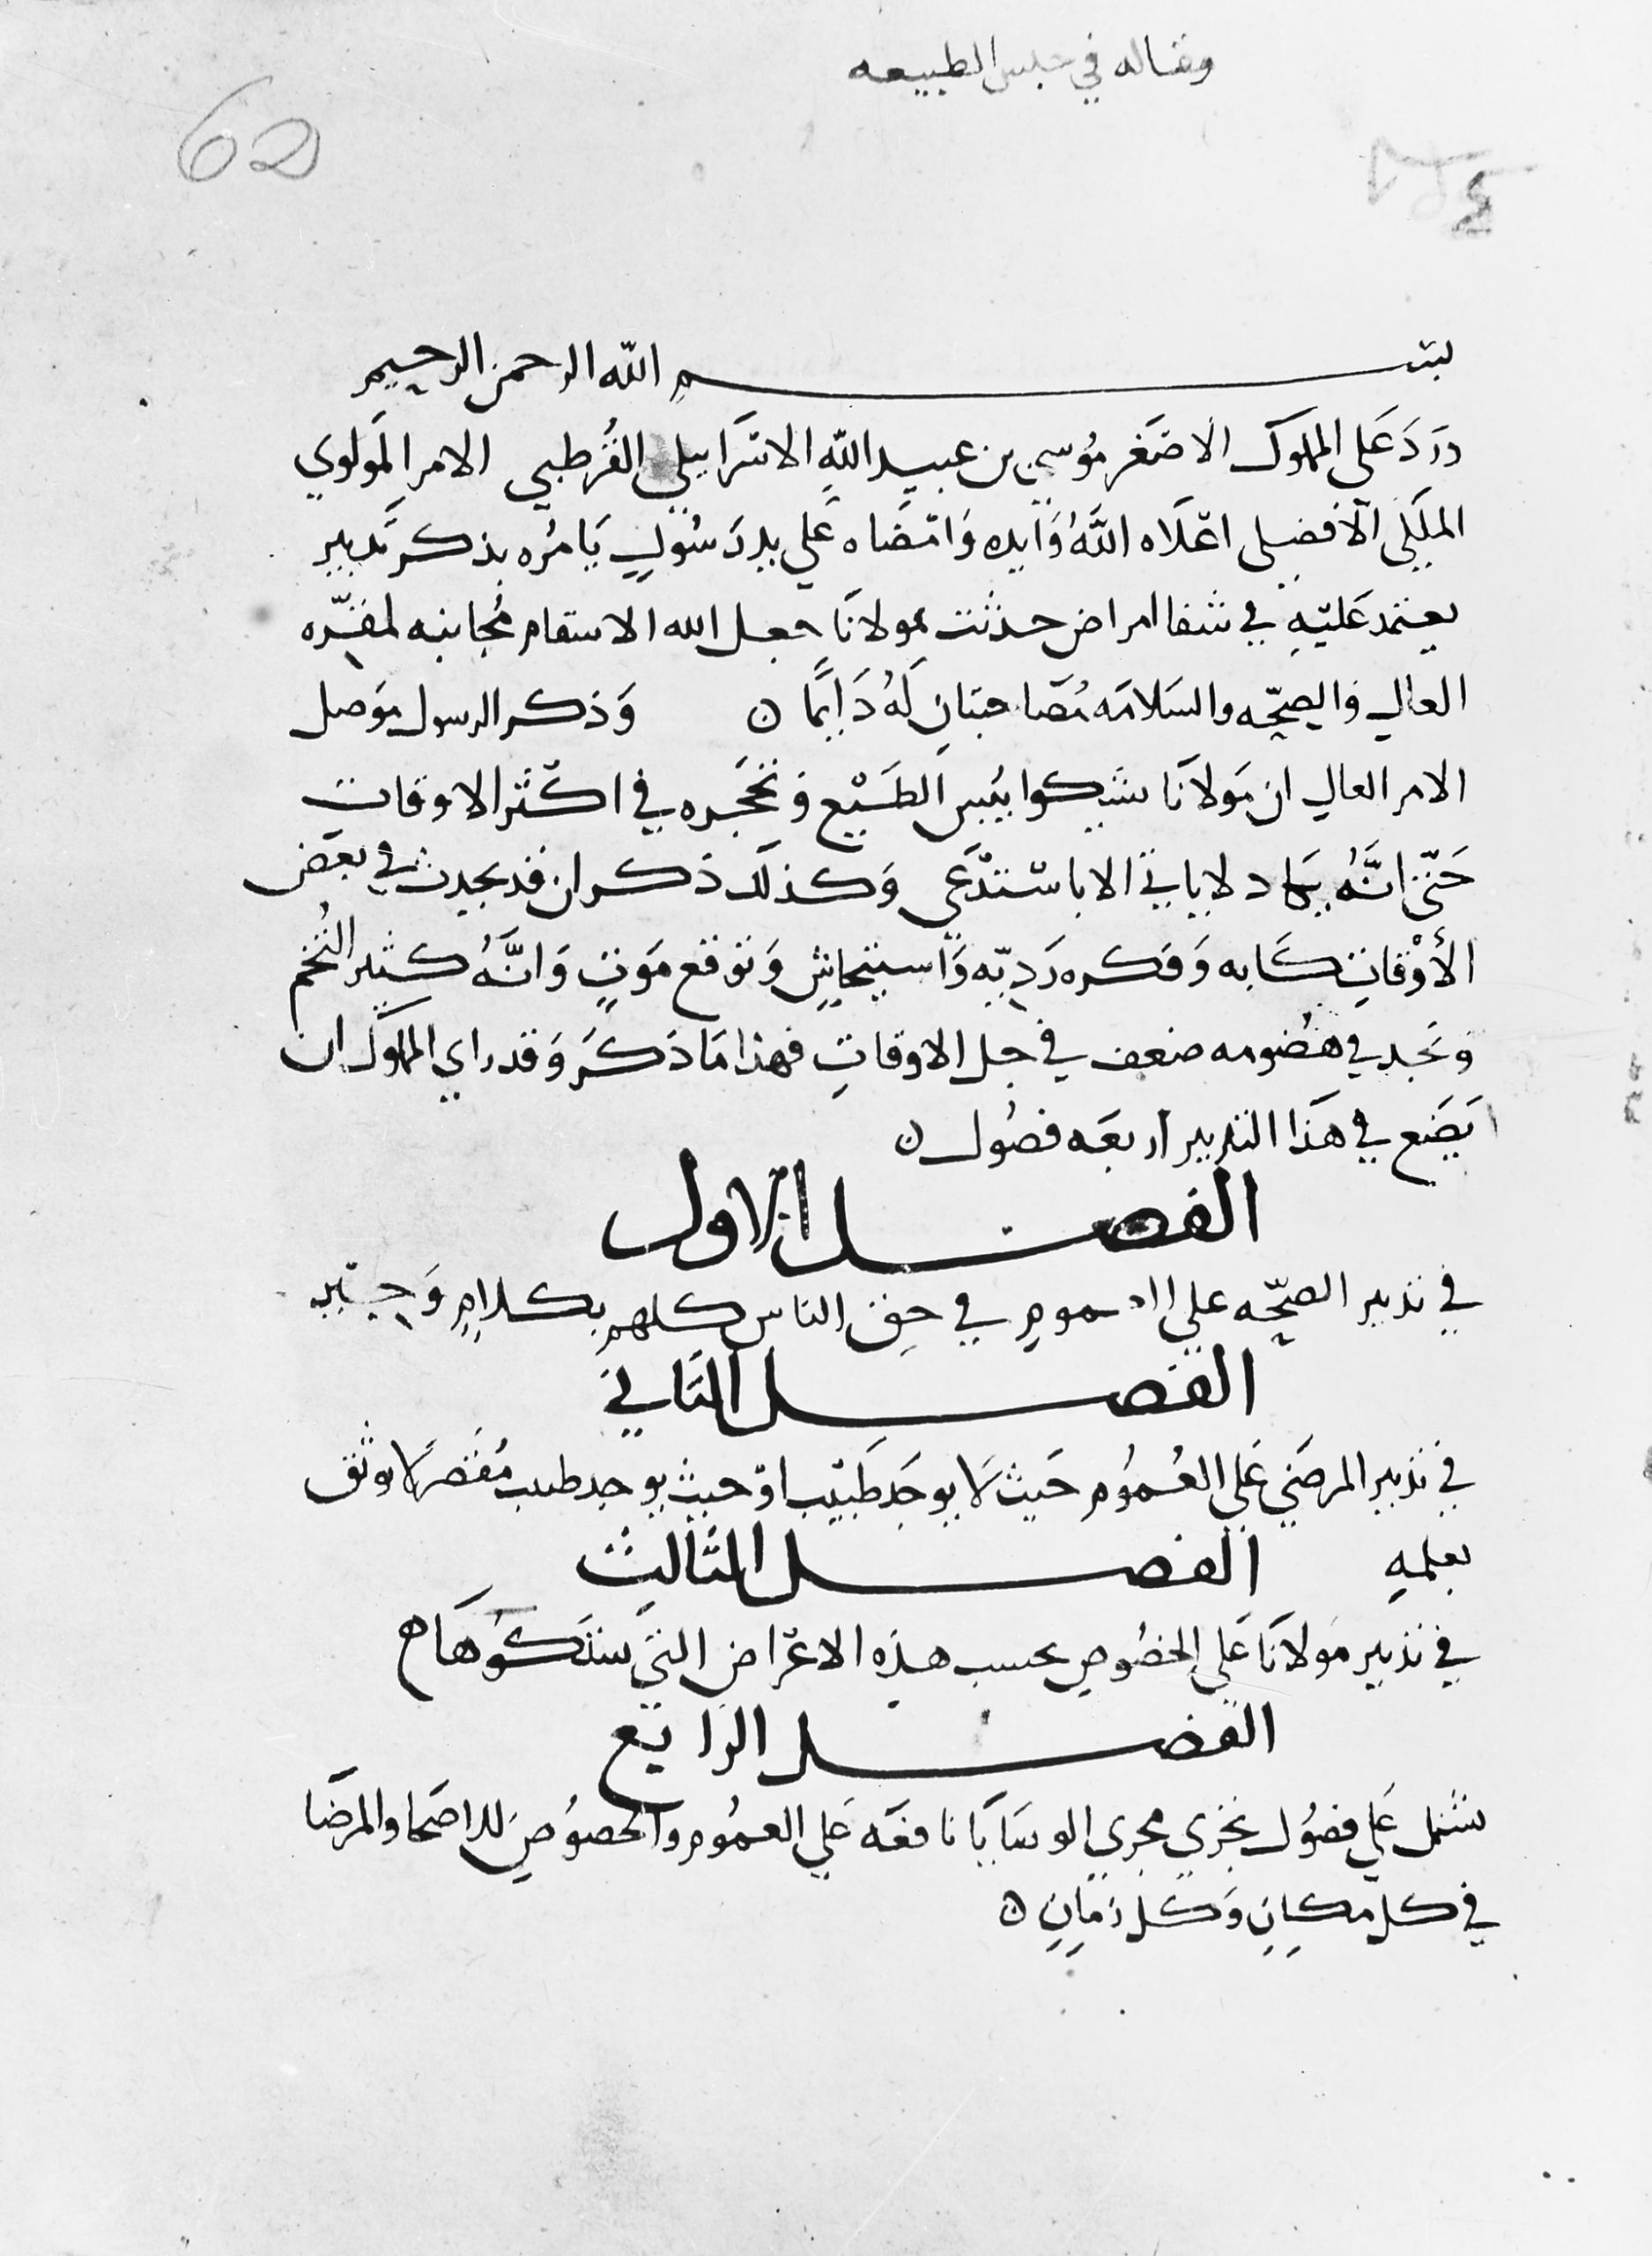 ومقاله في حبس الطبيعه
62
بسم الله الرحمن الرحيم
ورد على المملوك الاصغر موسى بن عبيد الله الاسرائيلي القرطبي الامر المولوي
الملكي الافضلي اعلاه الله وايده وامضاه علي يد رسول يامره بذكر تدبير
يعتمد عليه في شفا امراض حدثت بمولانا جعل الله الاسقام مجانبه لمقره
العالي والصحه والسلامه مصاحبتان له دايما ن وذكر الرسول موصل
الامر العالي ان مولانا يشكوا يبس الطبع وتحجره في اكثر الاوقات
حتى انه يكاد لا ياتي الا باستدعي وكذلك ذكر ان قد يحدث في بعض
الأوقات كابه وفكره رديه واستيحاش وتوقع موت وانه كثير التخم
ونجد في هضومه ضعف في جل الاوقات فهذا ما ذكر وقد راي المملوك ان
يضع في هذا التدبير اربعه فصول ن
الفصل الاول
في تدبير الصحه علي العموم في حق الناس كلهم بكلام وجيز
الفصل الثاني
في تدبير المرضي علي العموم حيث لا يوجد طبيب او حيث يوجد طبيب مقصر لا يوثق
بعلمه الفصل الثالث
في تدبير مولانا علي الخصوص بحسب هذه الاعراض التي يشتكوها
الفصل الرابع
يشتمل علي فصول تجري مجري الوسايا نافعه علي العموم والخصوص للاصحا والمرضا
في كل مكان وكل زمان ن